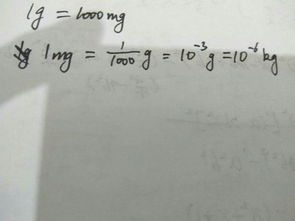 1g = 1000mg
1mg = 1/1000 g = 10⁻³g = 10⁻⁶kg